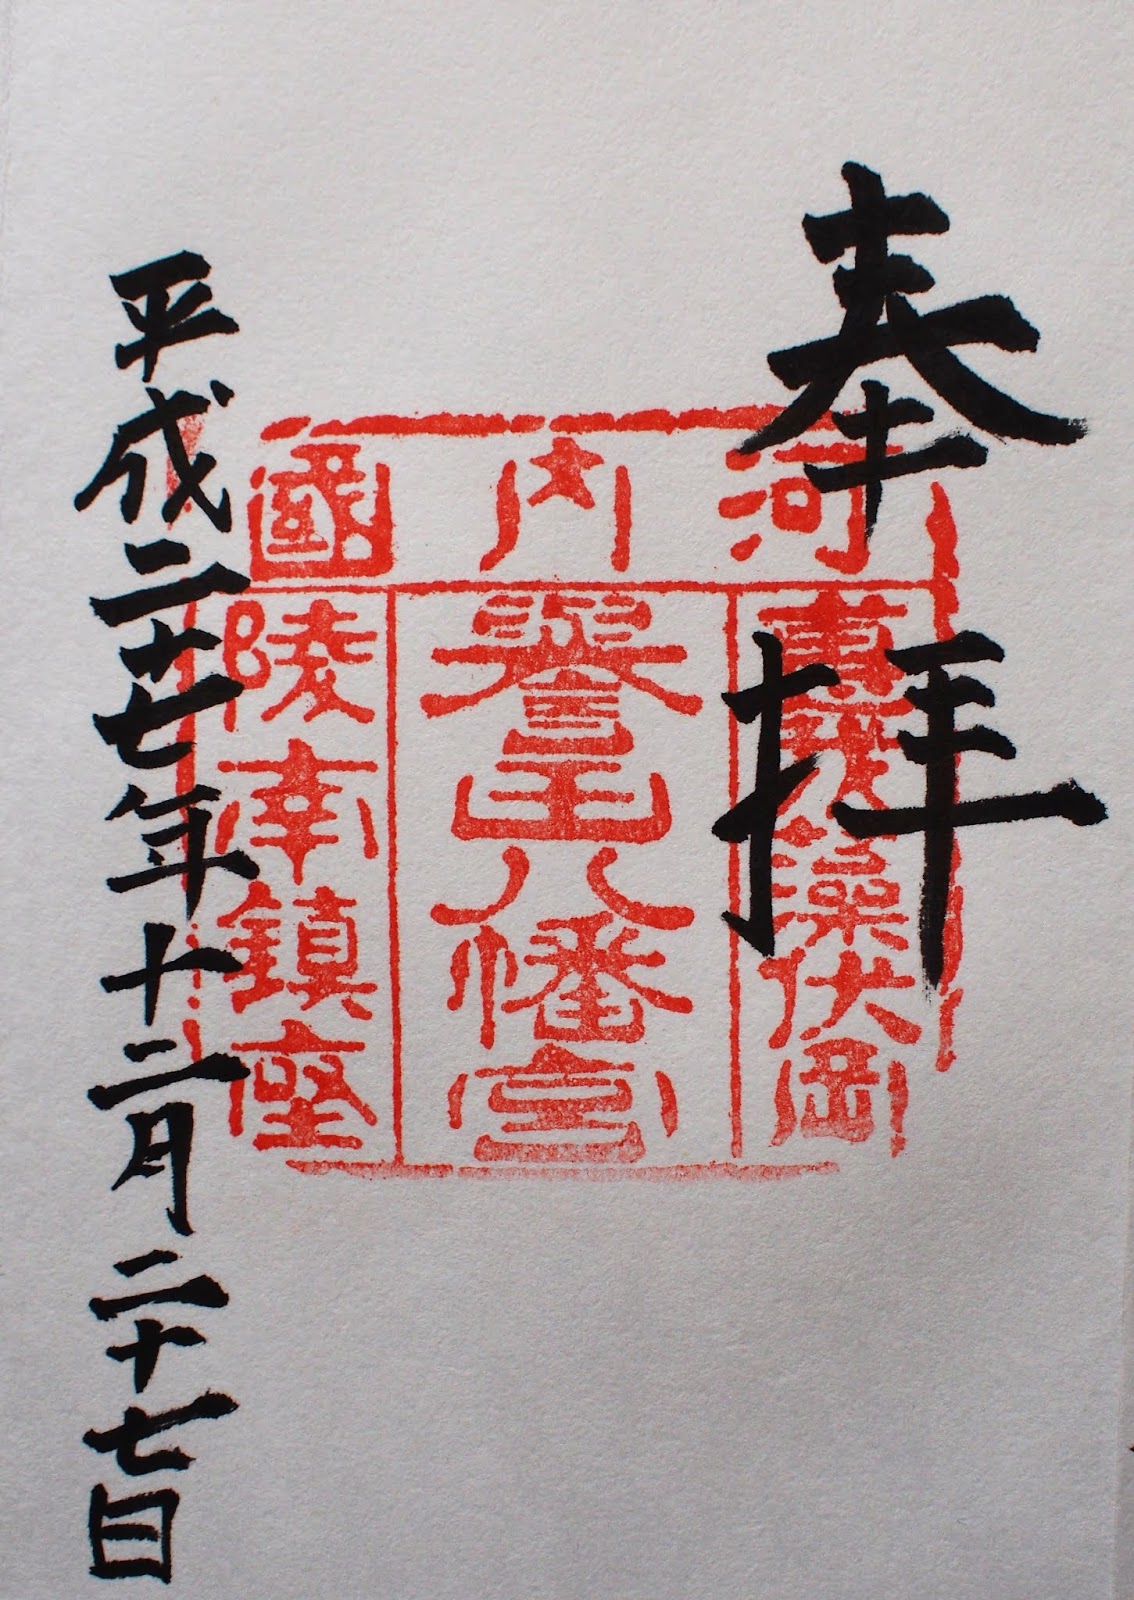 奉拝
河内國
惠我藻伏岡
譽田八幡宮
陵南鎮座
平成二十七年十二月二十七日